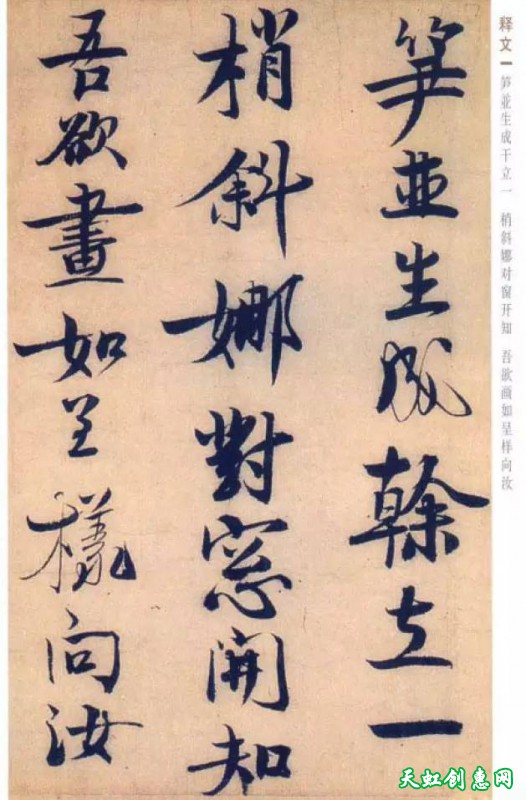 释文 笋並生成干立一 梢斜娜对窗开知 吾欲画如呈样向汝
笋並生成幹立一
梢斜娜對窓開知
吾欲畫如呈樣向汝
天虹创惠网